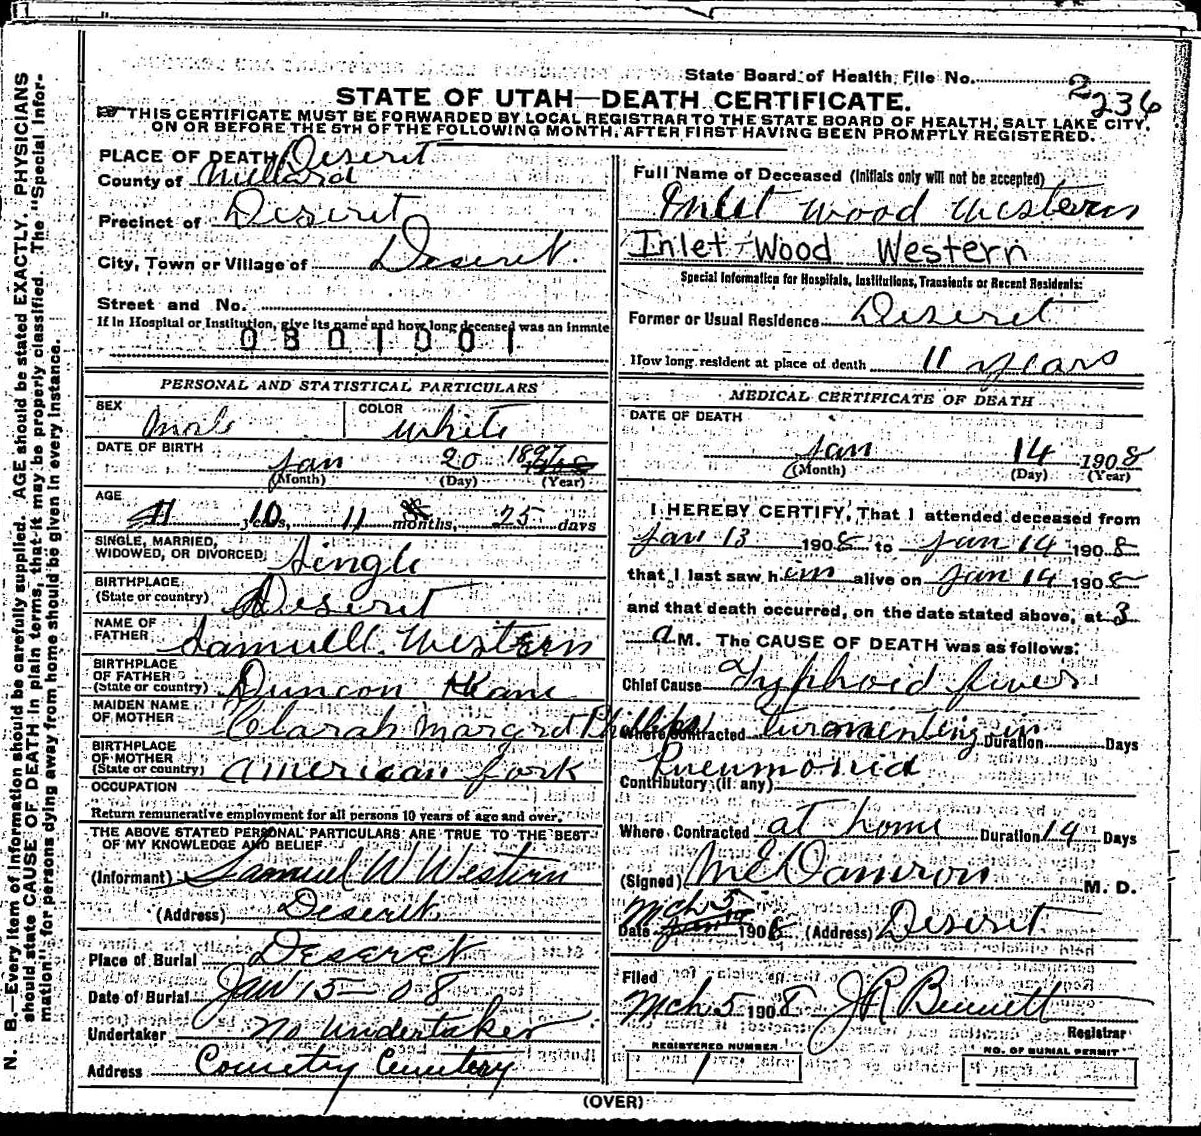 State Board of Health, File No. 2 236
STATE OF UTAH—DEATH CERTIFICATE.
THIS CERTIFICATE MUST BE FORWARDED BY LOCAL REGISTRAR TO THE STATE BOARD OF HEALTH, SALT LAKE CITY,
ON OR BEFORE THE 5TH OF THE FOLLOWING MONTH, AFTER FIRST HAVING BEEN PROMPTLY REGISTERED.
N. B.—Every item of information should be carefully supplied. AGE should be stated EXACTLY. PHYSICIANS
should state CAUSE OF DEATH in plain terms, that it may be properly classified. The "Special Infor-
mation" for persons dying away from home should be given in every instance.
PLACE OF DEATH Deseret
County of Millard
Precinct of Deseret
City, Town or Village of Deseret.
Street and No.
If in Hospital or Institution, give its name and how long deceased was an inmate
0801001
PERSONAL AND STATISTICAL PARTICULARS
SEX Male COLOR White
DATE OF BIRTH
Jan 20 1897
(Month) (Day) (Year)
AGE
10 years, 11 months, 25 days
SINGLE, MARRIED,
WIDOWED, OR DIVORCED Single
BIRTHPLACE
(State or country) Deseret
NAME OF
FATHER Samuell. Western
BIRTHPLACE
OF FATHER
(State or country) Duncon
MAIDEN NAME
OF MOTHER Clarah Margret Phillips
BIRTHPLACE
OF MOTHER
(State or country) American fork
OCCUPATION
Return remunerative employment for all persons 10 years of age and over.
THE ABOVE STATED PERSONAL PARTICULARS ARE TRUE TO THE BEST
OF MY KNOWLEDGE AND BELIEF
(Informant) Samuel W Western
(Address) Deseret.
Place of Burial Deseret
Date of Burial Jan 15-08
Undertaker No Undertaker
Address Country Cemetery
Full Name of Deceased (Initials only will not be accepted)
Inlet Wood Western
Inlet Wood Western
Special Information for Hospitals, Institutions, Transients or Recent Residents:
Former or Usual Residence Deseret
How long resident at place of death 11 years
MEDICAL CERTIFICATE OF DEATH
DATE OF DEATH
Jan 14 1908
(Month) (Day) (Year)
I HEREBY CERTIFY, That I attended deceased from
Jan 13 1908 to Jan 14 1908
that I last saw him alive on Jan 14 1908
and that death occurred, on the date stated above, at 3
a M. The CAUSE OF DEATH was as follows:
Chief Cause Typhoid fever
Where Contracted turomenting in Duration Days
Pneumonia
Contributory (if any)
Where Contracted at home Duration 14 Days
(Signed) M E Damron M. D.
Mch 5
Date 1908 (Address) Deseret.
Filed
Mch 5 1908 J R Bennett
Registrar
REGISTERED NUMBER
1
NO. OF BURIAL PERMIT
(OVER)